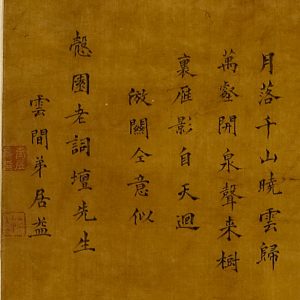 月落千山曉雲歸
萬壑開泉聲来樹
裏雁影自天迴
倣關仝意似
愨園老詞壇先生
雲間弟居益